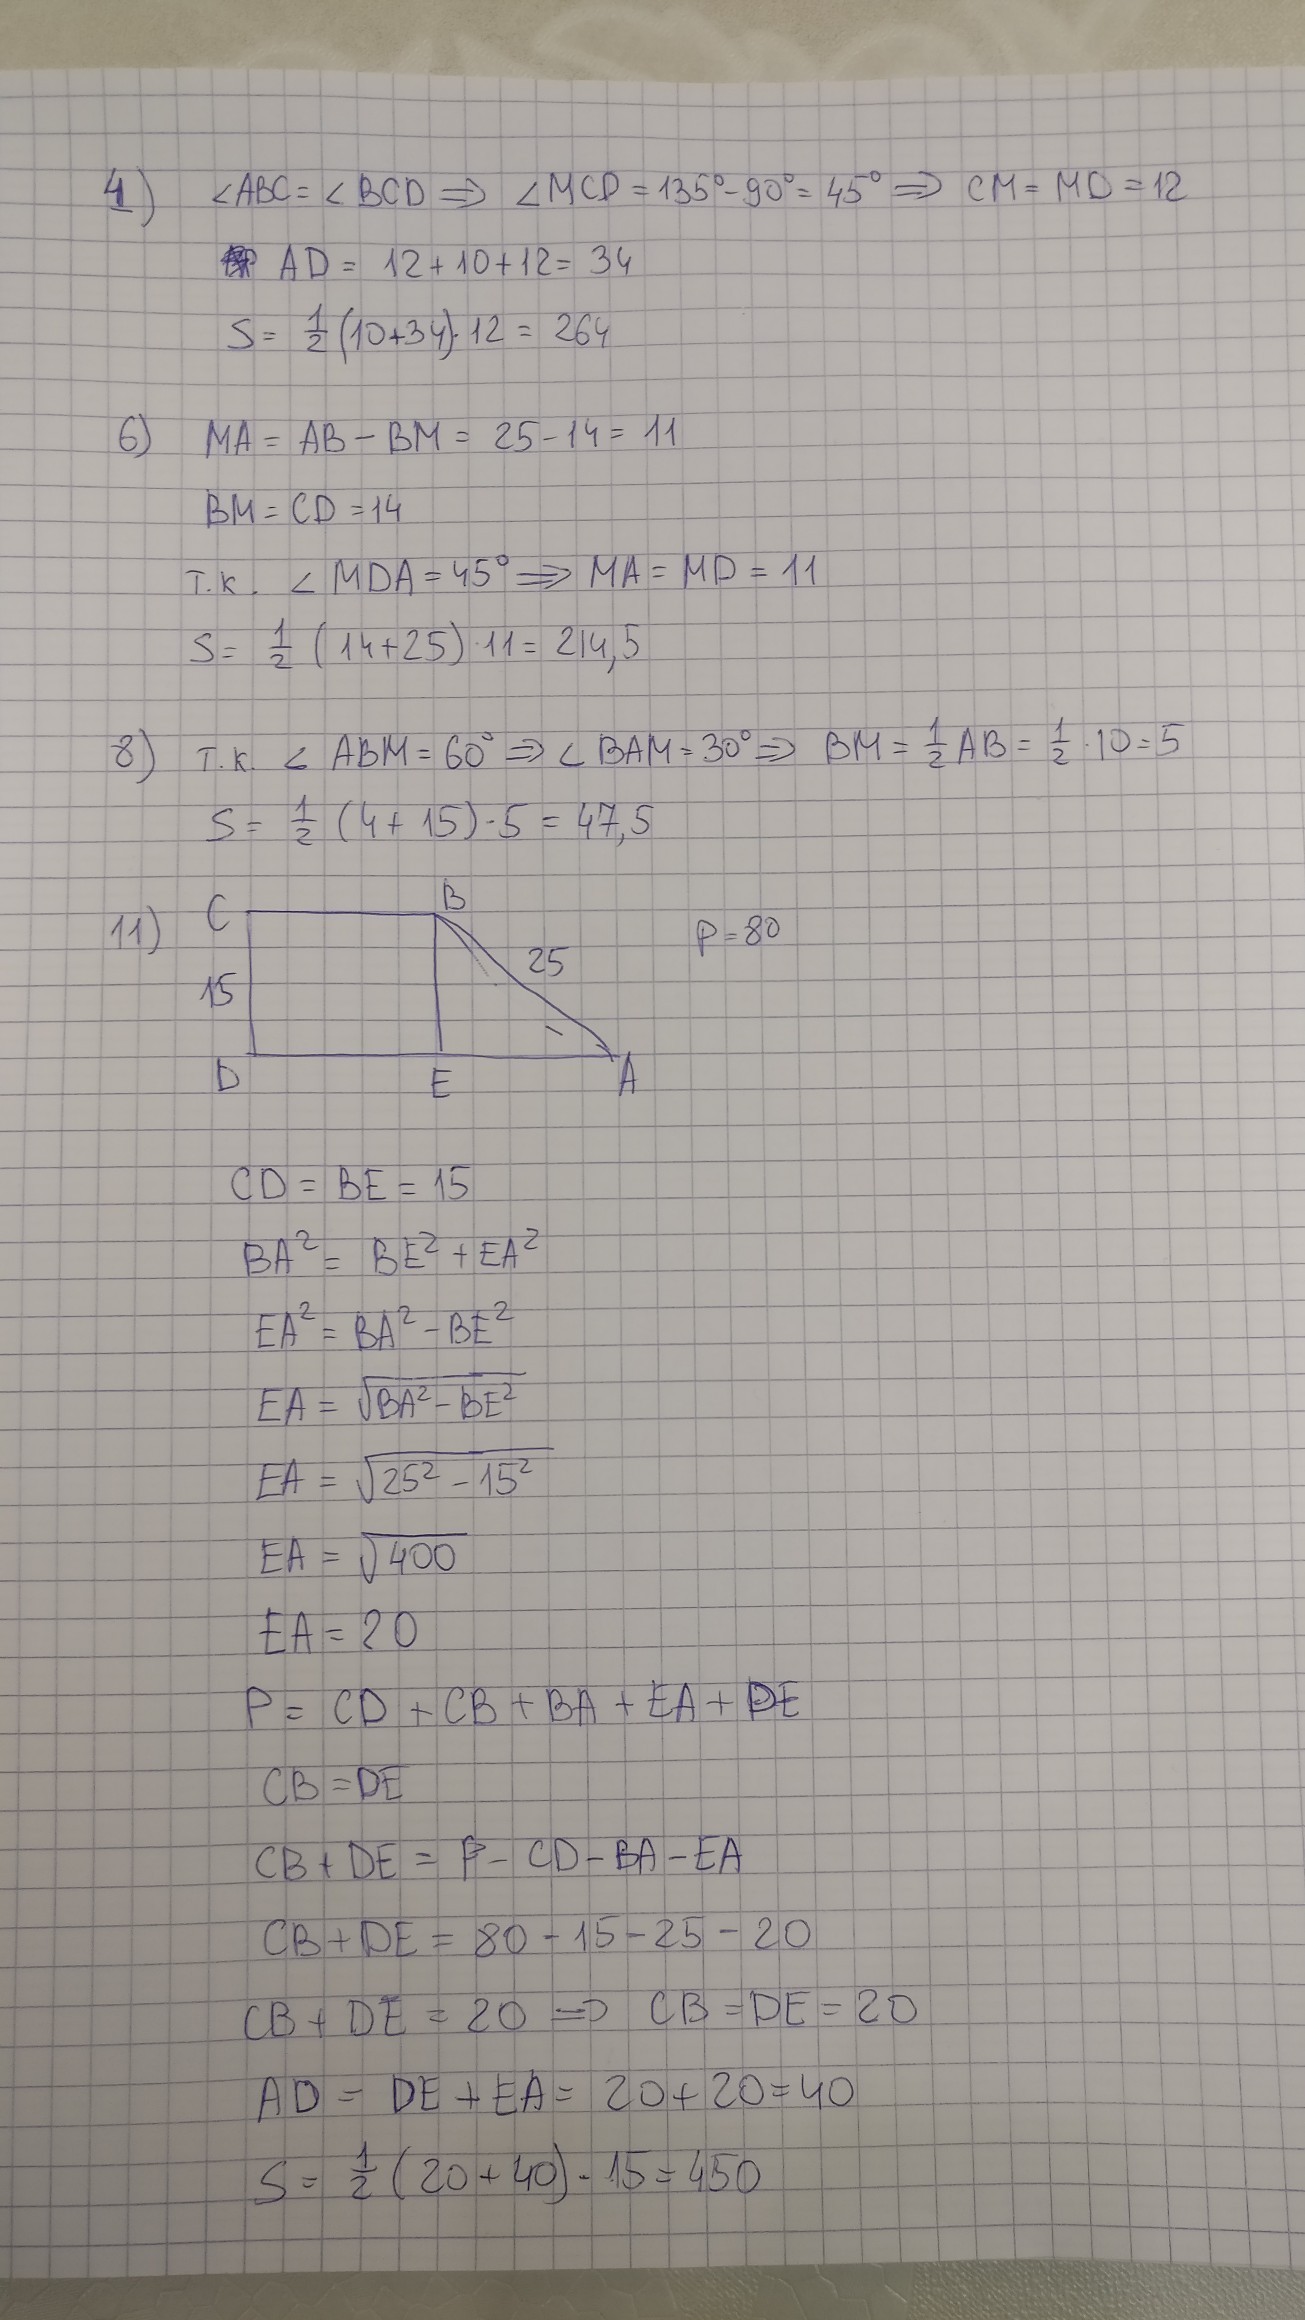 4) ∠ABC = ∠BCD ⇒ ∠MCD = 135° - 90° = 45° ⇒ CM = MD = 12
AD = 12 + 10 + 12 = 34
S = 1/2 (10+34) · 12 = 264
6) MA = AB - BM = 25 - 14 = 11
BM = CD = 14
т.к. ∠MDA = 45° ⇒ MA = MD = 11
S = 1/2 (14+25) · 11 = 214,5
8) т.к. ∠ABM = 60° ⇒ ∠BAM = 30° ⇒ BM = 1/2 AB = 1/2 · 10 = 5
S = 1/2 (4+15) · 5 = 47,5
11) C B P = 80
15 25
D E A
CD = BE = 15
BA² = BE² + EA²
EA² = BA² - BE²
EA = √(BA² - BE²)
EA = √(25² - 15²)
EA = √400
EA = 20
P = CD + CB + BA + EA + DE
CB = DE
CB + DE = P - CD - BA - EA
CB + DE = 80 - 15 - 25 - 20
CB + DE = 20 ⇒ CB = DE = 20
AD = DE + EA = 20 + 20 = 40
S = 1/2 (20+40) · 15 = 450